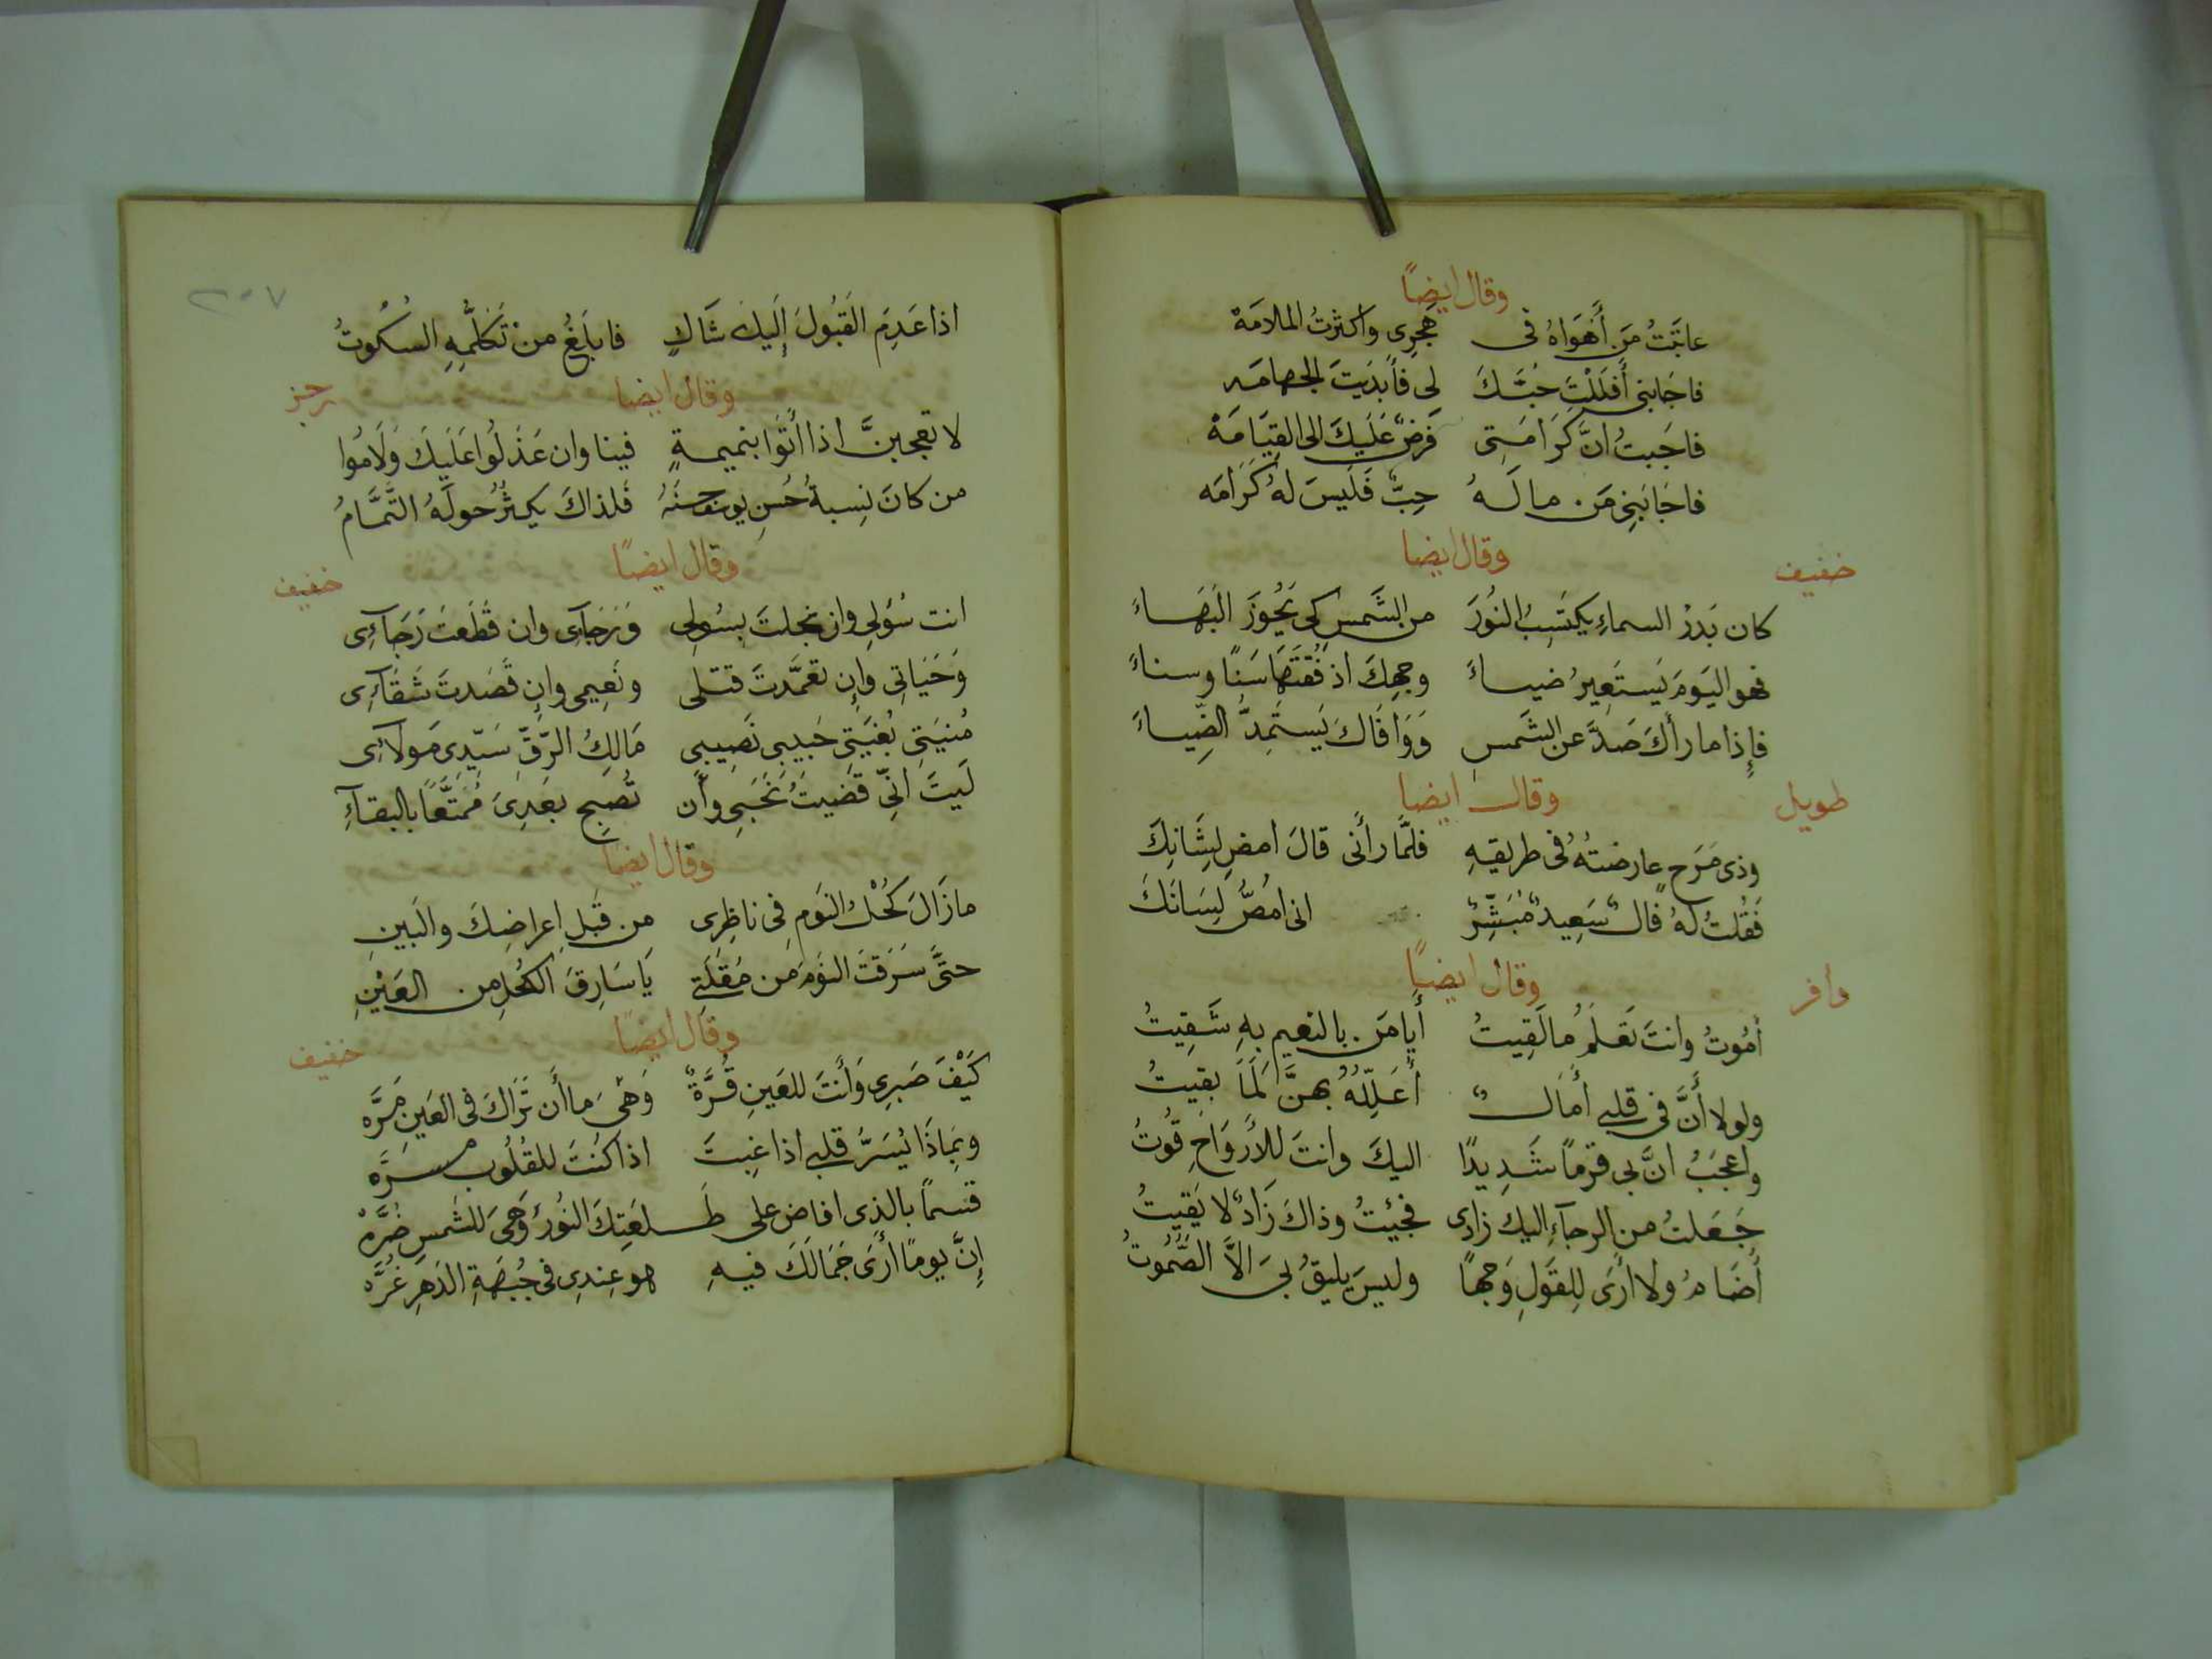 وقال ايضًا
عاتَبتُ مَن أَهَواهُ فى هَجرِى واكثرتُ الملامَة
فاجَابنى أَفلَلْتَ حُبَّكَ لى فأبدَيتَ الجهامَه
فاجَبتُ انَّ كَرَامَتِى فَرضٌ عَلَيكَ الى القِيَامَة
فاجَابَنِى مَن ما لَهُ حِبٌّ فَلَيسَ لهُ كَرَامَه
وقال ايضا
خفيف
كان بَدرُ السماءِ يكتَسِبُ النُورَ من الشَمسِ كى يَحُوزَ البَهَاءَ
فهو اليَومَ يَستَعِيرُ ضياءً وجهِكَ اذ فُقتَهَا سَنًا وسناءً
فإِذا ما رأكَ صَدَّ عن الشَمسِ وَوَافَاكَ يَستَمِدُّ الضِّياءَ
وقال ايضا
طويل
وذى مَرَحٍ عارضتُهُ فى طريقهِ فلمَّا رأنى قالَ امضِ لِشَانِكَ
فَقُلتُ لهُ فالٌ سَعِيدٌ مُبَشِّرٌ انى امُصُّ لِسَانَكَ
وقال ايضًا
وافر
أمُوتُ وانتَ تَعلَمُ ما لَقِيتُ أيا مَن بالنعيم بهِ شَقِيتُ
ولولا أَنَّ فى قلبى أَمَالٌ أُعَلِّلهُ بهنَّ لَمَا بقيتُ
واعجَبُ انَّ بى قرَمًا شَدِيدًا اليكَ وانتَ للأَروَاحِ قُوتُ
جَعَلتُ من الرجآءِ اليك زادى فجئيتُ وذاكَ زَادٌ لا يَقِيتُ
أُضَامُ ولا أرَى لِلقَولِ وَجهًا وليسَ يليقُ بى الاَّ الصُّمُوتُ
٢٥٧
اذا عَدِمَ القَبُولَ إِليكَ شَاكٍ فابلَغُ من تَكلُّمِهِ السكُوتُ
وقال ايضا
رجز
لا تعجبنَّ اذا أتَوا بنميمةٍ فينا وان عَذَلُوا عَلَيكَ وَلَامُوا
من كانَ نِسبةُ حُسنِ يوسف حسنُهُ فَلذاكَ يكثُرُ حَولَهُ النَّمَّامُ
وقال ايضًا
خفيف
انت سُؤلِى وان بخلتَ بسُولى وَرَجَآىِ وان قَطَعتَ رَجَآءِى
وَحَيَاتِى وإن تعَمَّدتَ قتلى ونَعِيمى وإن قَصَدتَ شَقَآءِى
مُنيَتِى بُغيَتِى حَبيبى نَصِيبِى مَالِكُ الرّقِّ سَيّدِى مَولَآىِ
لَيتَ انِّى قضَيتُ نَحبى وأَن تُصبِحِ بعَدِىَ مُمَتَّعًا بالبقآءِ
وقال ايضا
ما زَالَ كُحْلُ النَومِ فى ناظِرِى من قَبلِ إعراضِكَ والبَينِ
حتَّى سَرَقتَ النَومَ من مُقلَتِى يَا سَارِقَ الكُحلِ من العَيْنِ
وقال ايضًا
خفيف
كَيْفَ صَبرِى وَأنتَ للعَينِ قُرَّةٌ وَهْىَ ما أَن تَرَاكَ فى العَينِ مَرَّه
وبمَاذَا يُسَرُّ قلبى اذا غِبتَ اذا كُنتَ للقُلُوبِ مسرَّه
قسمًا بالذِى افاض على طَلعَتِكَ النُورَ وَهىَ للشَمسِ ضَرَّهْ
إِنَّ يومًا أرَى جَمَالَكَ فيهِ هو عِندِى فى جُبهَةِ الدَهرِ غُرَّه